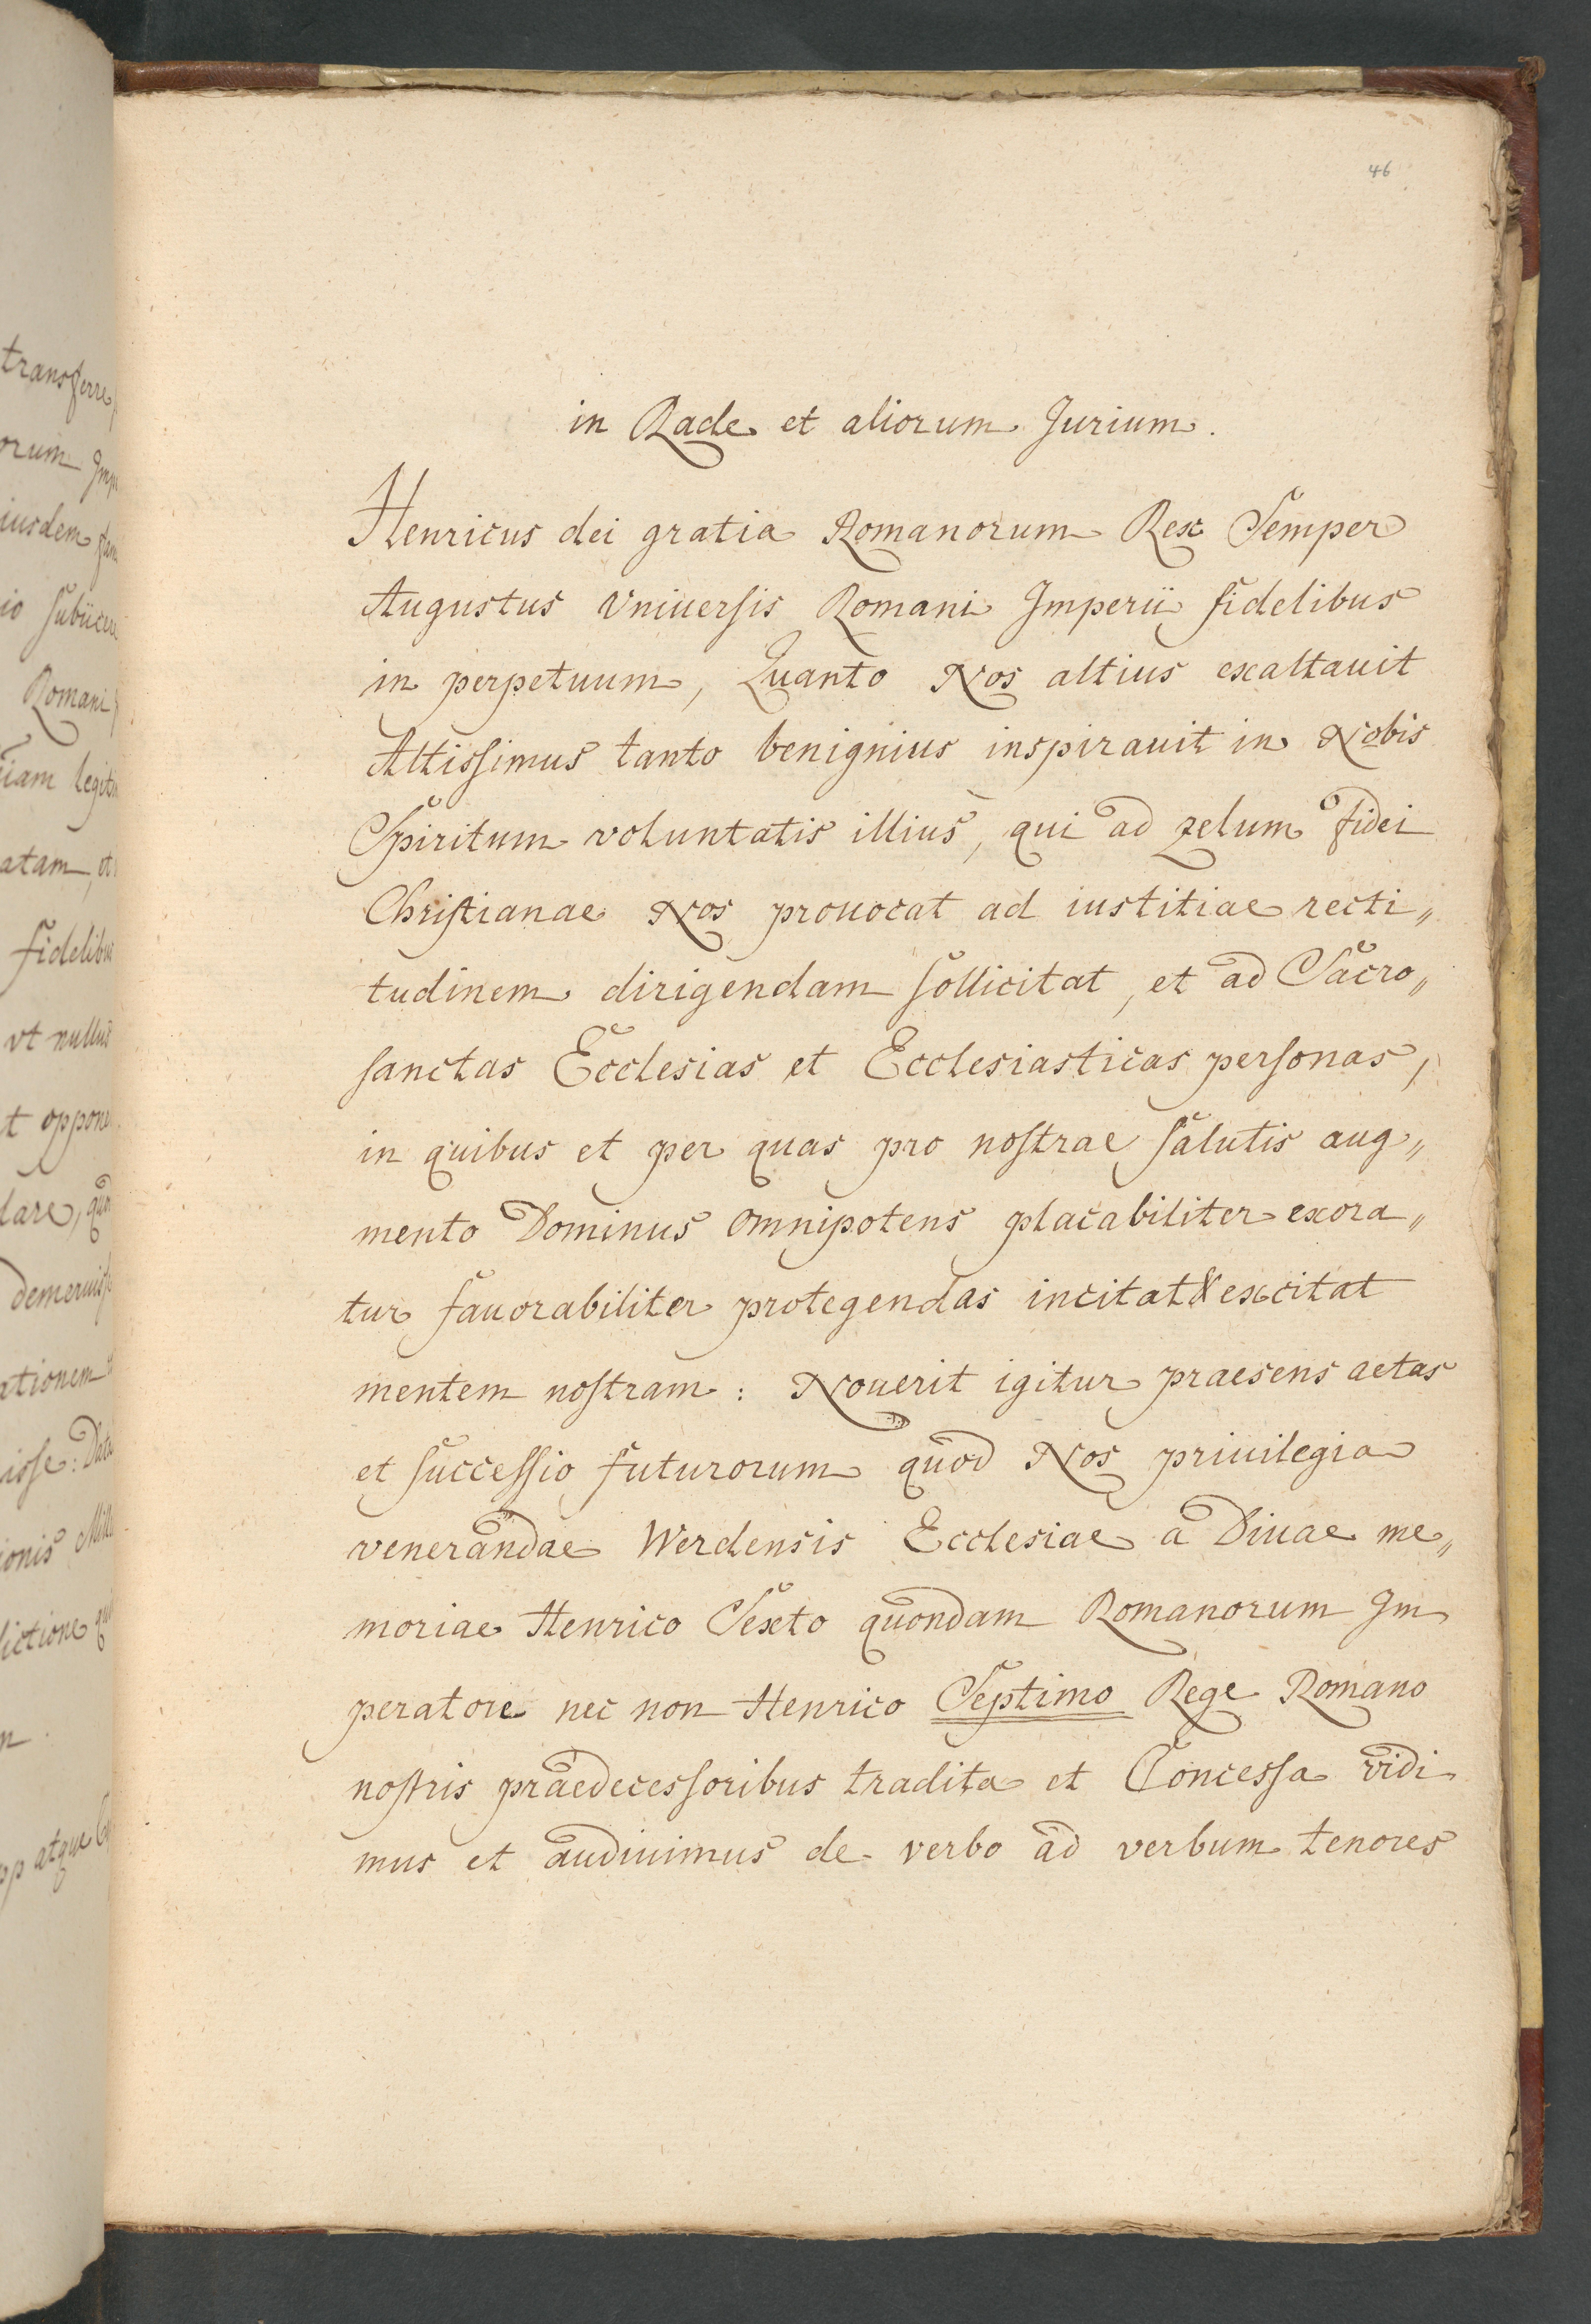 46
in Rade et aliorum Jurium.
Henricus dei gratia Romanorum Rex Semper
Augustus Vniuersis Romani Imperii fidelibus
in perpetuum, Quanto Nos altius exaltauit
Altissimus tanto benignius inspirauit in Nobis
Spiritum voluntatis illius, qui ad zelum fidei
Christianae Nos prouocat ad iustitiae recti„
tudinem dirigendam sollicitat, et ad Sacro„
sanctas Ecclesias et Ecclesiasticas personas,
in quibus et per quas pro nostrae salutis aug„
mento Dominus omnipotens placabiliter exora„
tur fauorabiliter protegendas incitat & excitat
mentem nostram: Nouerit igitur praesens aetas
et successio futurorum quod Nos priuilegia
venerandae Werdensis Ecclesiae a Diuae me„
moriae Henrico Sexto quondam Romanorum Im
peratore nec non Henrico Septimo Rege Romano
nostris praedecessoribus tradita et Concessa vidi
mus et audiuimus de verbo ad verbum tenores
transferre
orum Imp
iusdem
io subiicere
Romani
iam legit
atam, et
fidelibus
vt nullus
t oppone
lare, quo
demeruiss
ationem
isse: Data
ionis Mill
ictione qu
pp atque